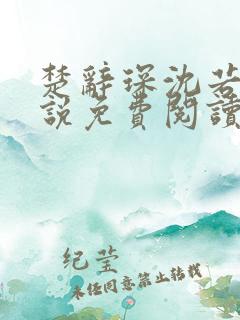 楚辭琛沈若
說免費閱讀
纪莹
未经同意禁止转载